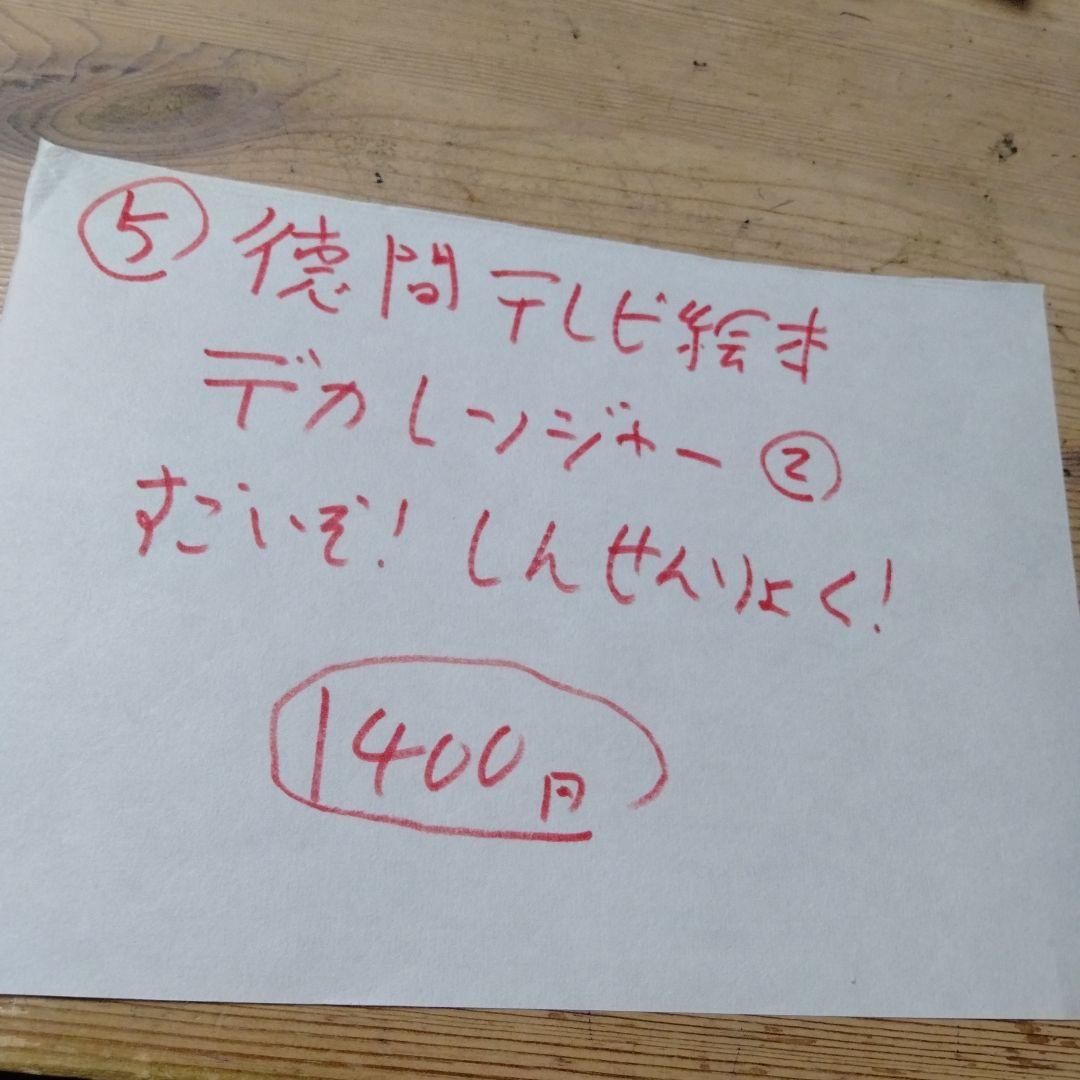 ⑤ 徳間テレビ絵本
デカレンジャー②
すごいぞ！しんせんりょく！
1400円